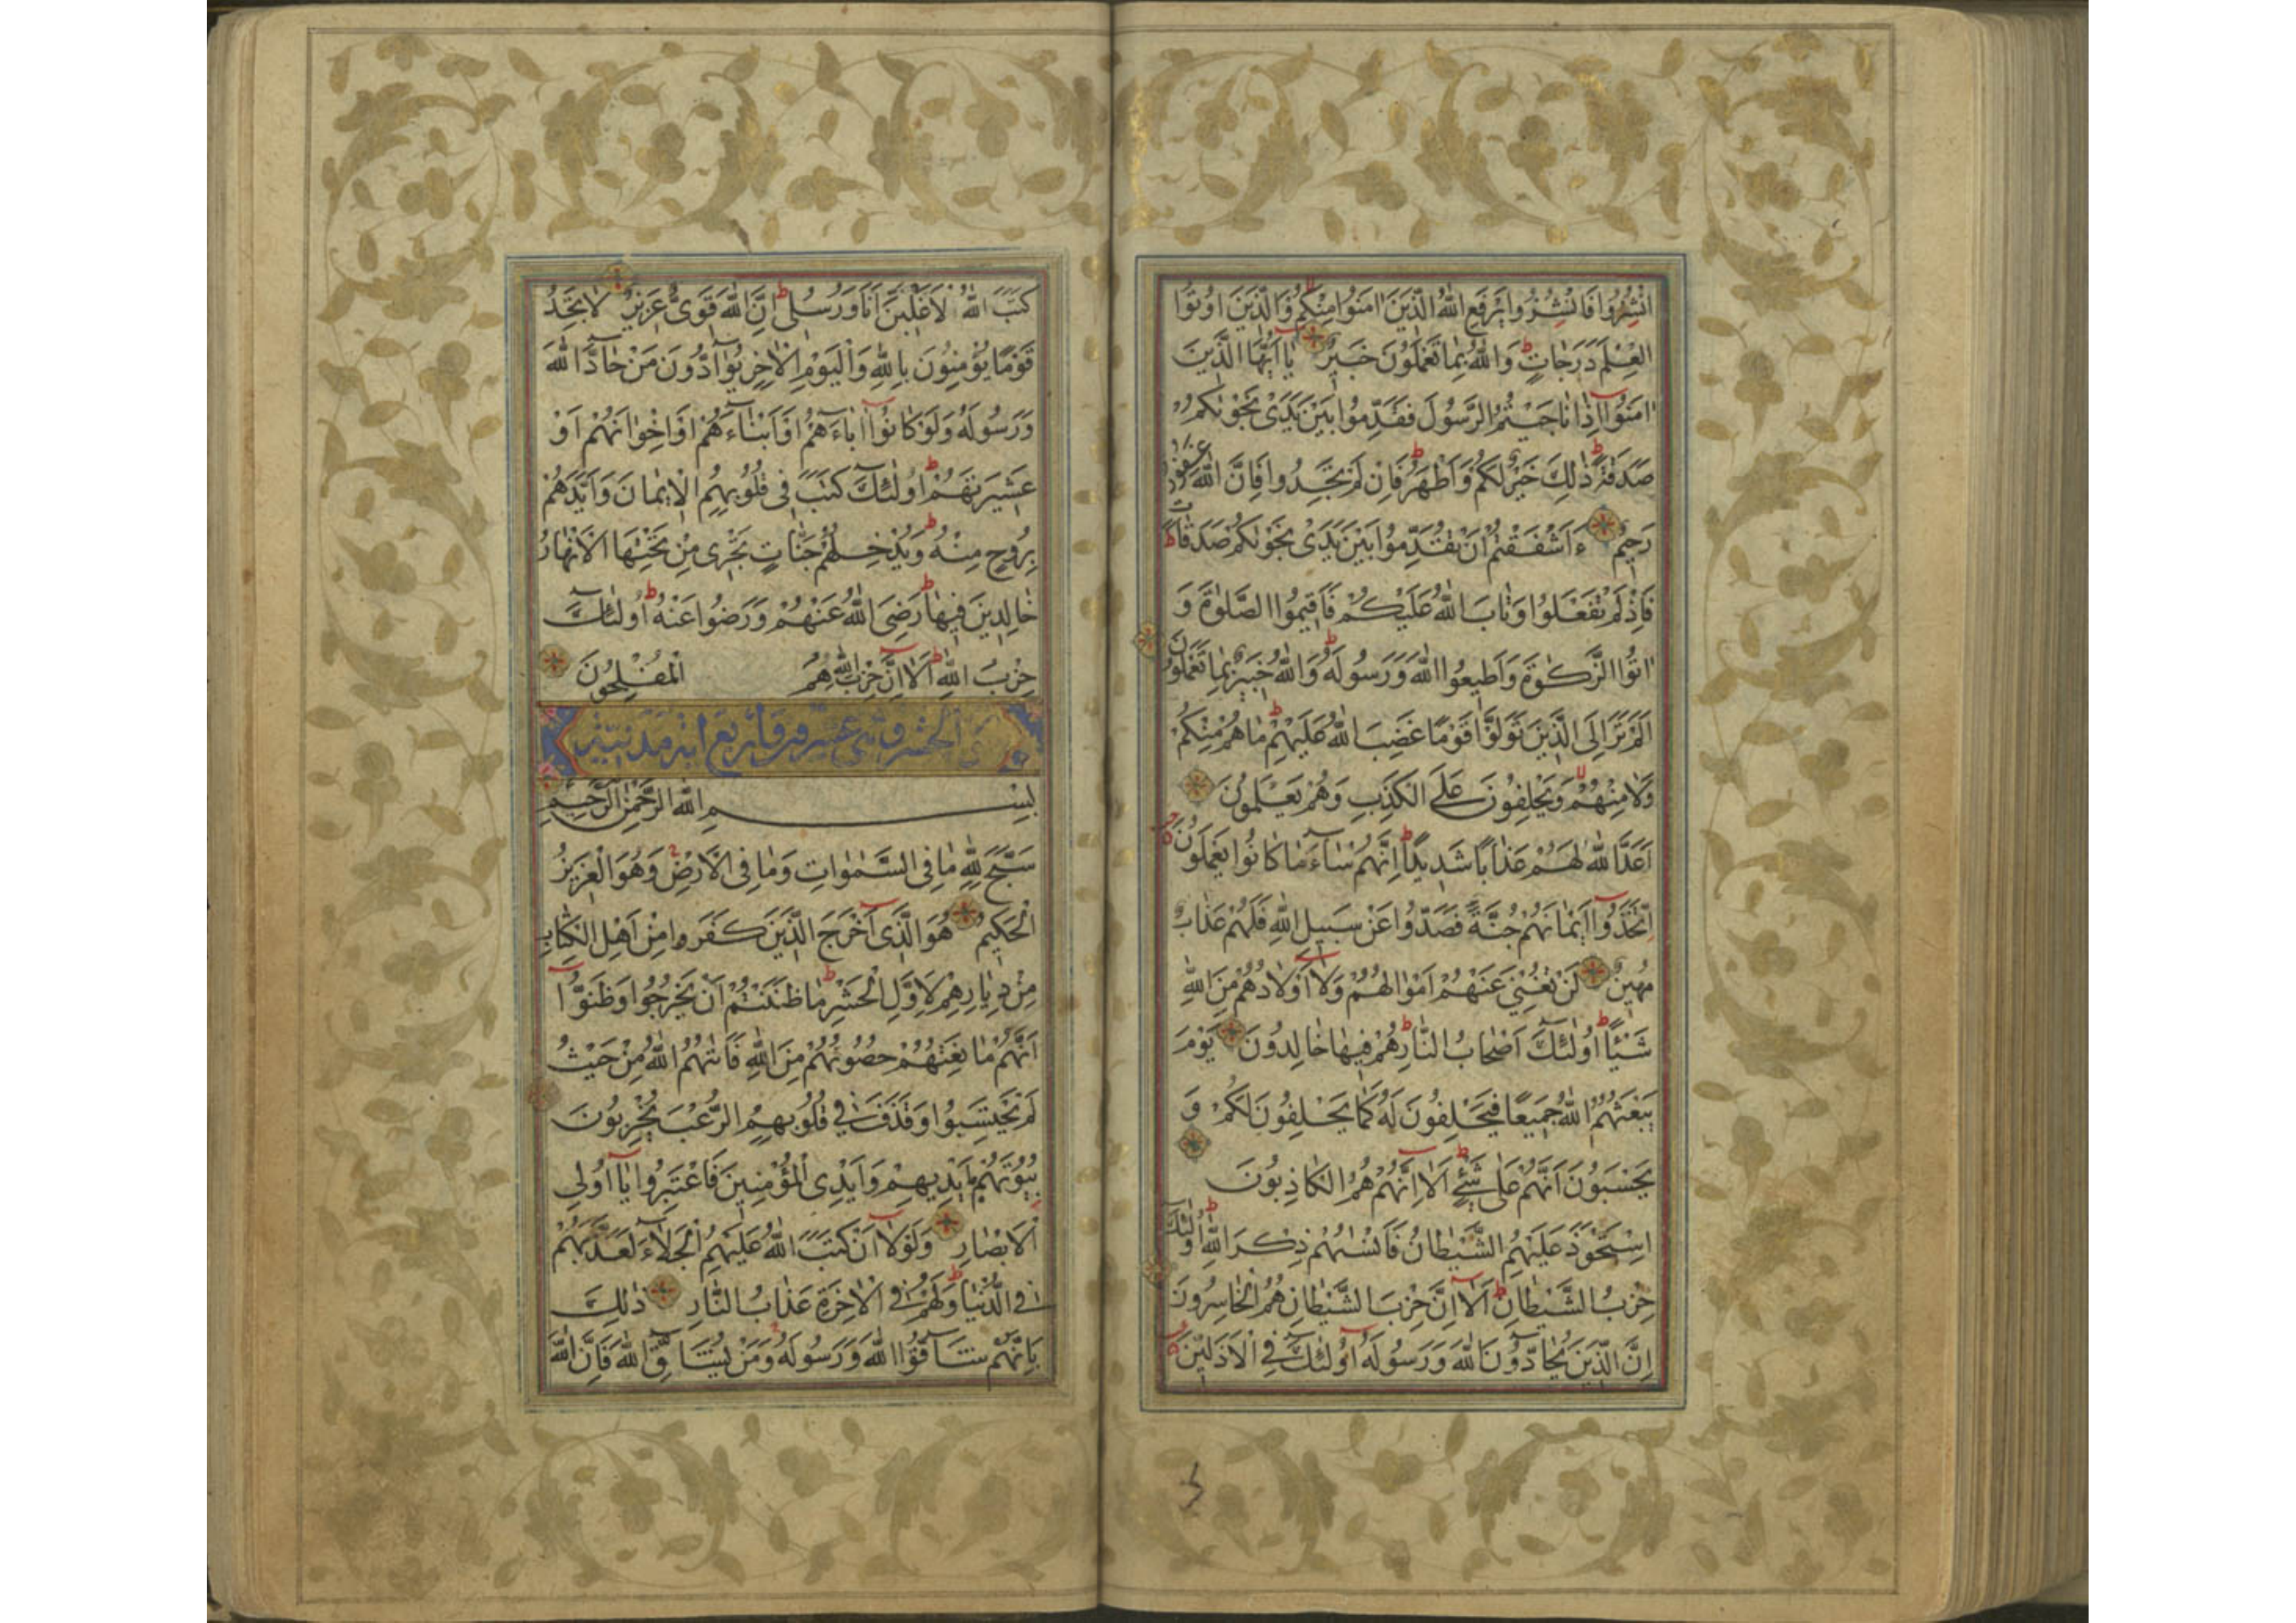 انْشُزُوا فَانْشُزُوا يَرْفَعِ اللَّهُ الَّذِينَ اٰمَنُوا مِنْكُمْ وَالَّذِينَ اُوتُوا
الْعِلْمَ دَرَجَاتٍ وَاللَّهُ بِمَا تَعْمَلُونَ خَبِيرٌ يَا اَيُّهَا الَّذِينَ
اٰمَنُوا اِذَا نَاجَيْتُمُ الرَّسُولَ فَقَدِّمُوا بَيْنَ يَدَىْ نَجْوٰيكُمْ
صَدَقَةً ذٰلِكَ خَيْرٌ لَكُمْ وَاَطْهَرُ فَاِنْ لَمْ تَجِدُوا فَاِنَّ اللَّهَ غَفُورٌ
رَحِيمٌ ءَاَشْفَقْتُمْ اَنْ تُقَدِّمُوا بَيْنَ يَدَىْ نَجْوٰيكُمْ صَدَقَاتٍ
فَاِذْ لَمْ تَفْعَلُوا وَتَابَ اللَّهُ عَلَيْكُمْ فَاَقِيمُوا الصَّلٰوةَ وَ
اٰتُوا الزَّكٰوةَ وَاَطِيعُوا اللَّهَ وَرَسُولَهُ وَاللَّهُ خَبِيرٌ بِمَا تَعْمَلُونَ
اَلَمْ تَرَ اِلَى الَّذِينَ تَوَلَّوْا قَوْمًا غَضِبَ اللَّهُ عَلَيْهِمْ مَا هُمْ مِنْكُمْ
وَلَا مِنْهُمْ وَيَحْلِفُونَ عَلَى الْكَذِبِ وَهُمْ يَعْلَمُونَ
اَعَدَّ اللَّهُ لَهُمْ عَذَابًا شَدِيدًا اِنَّهُمْ سَاءَ مَا كَانُوا يَعْمَلُونَ
اِتَّخَذُوا اَيْمَانَهُمْ جُنَّةً فَصَدُّوا عَنْ سَبِيلِ اللَّهِ فَلَهُمْ عَذَابٌ
مُهِينٌ لَنْ تُغْنِيَ عَنْهُمْ اَمْوَالُهُمْ وَلَا اَوْلَادُهُمْ مِنَ اللَّهِ
شَيْئًا اُولٰئِكَ اَصْحَابُ النَّارِ هُمْ فِيهَا خَالِدُونَ يَوْمَ
يَبْعَثُهُمُ اللَّهُ جَمِيعًا فَيَحْلِفُونَ لَهُ كَمَا يَحْلِفُونَ لَكُمْ وَ
يَحْسَبُونَ اَنَّهُمْ عَلٰى شَيْءٍ اَلَا اِنَّهُمْ هُمُ الْكَاذِبُونَ
اِسْتَحْوَذَ عَلَيْهِمُ الشَّيْطَانُ فَاَنْسٰيهُمْ ذِكْرَ اللَّهِ اُولٰئِكَ
حِزْبُ الشَّيْطَانِ اَلَا اِنَّ حِزْبَ الشَّيْطَانِ هُمُ الْخَاسِرُونَ
اِنَّ الَّذِينَ يُحَادُّونَ اللَّهَ وَرَسُولَهُ اُولٰئِكَ فِي الْاَذَلِّينَ
كَتَبَ اللَّهُ لَاَغْلِبَنَّ اَنَا وَرُسُلِى اِنَّ اللَّهَ قَوِىٌّ عَزِيزٌ لَا تَجِدُ
قَوْمًا يُؤْمِنُونَ بِاللَّهِ وَالْيَوْمِ الْاٰخِرِ يُوَادُّونَ مَنْ حَادَّ اللَّهَ
وَرَسُولَهُ وَلَوْ كَانُوا اٰبَاءَهُمْ اَوْ اَبْنَاءَهُمْ اَوْ اِخْوَانَهُمْ اَوْ
عَشِيرَتَهُمْ اُولٰئِكَ كَتَبَ فِى قُلُوبِهِمُ الْاِيمَانَ وَاَيَّدَهُمْ
بِرُوحٍ مِنْهُ وَيُدْخِلُهُمْ جَنَّاتٍ تَجْرِى مِنْ تَحْتِهَا الْاَنْهَارُ
خَالِدِينَ فِيهَا رَضِىَ اللَّهُ عَنْهُمْ وَرَضُوا عَنْهُ اُولٰئِكَ
حِزْبُ اللَّهِ اَلَا اِنَّ حِزْبَ اللَّهِ هُمُ الْمُفْلِحُونَ
الحشر وهى عشرون واربع اية مدنية
بِسْمِ اللَّهِ الرَّحْمٰنِ الرَّحِيمِ
سَبَّحَ لِلَّهِ مَا فِى السَّمٰوَاتِ وَمَا فِى الْاَرْضِ وَهُوَ الْعَزِيزُ
الْحَكِيمُ هُوَ الَّذِى اَخْرَجَ الَّذِينَ كَفَرُوا مِنْ اَهْلِ الْكِتَابِ
مِنْ دِيَارِهِمْ لِاَوَّلِ الْحَشْرِ مَا ظَنَنْتُمْ اَنْ يَخْرُجُوا وَظَنُّوا
اَنَّهُمْ مَانِعَتُهُمْ حُصُونُهُمْ مِنَ اللَّهِ فَاَتٰيهُمُ اللَّهُ مِنْ حَيْثُ
لَمْ يَحْتَسِبُوا وَقَذَفَ فِى قُلُوبِهِمُ الرُّعْبَ يُخْرِبُونَ
بُيُوتَهُمْ بِاَيْدِيهِمْ وَاَيْدِى الْمُؤْمِنِينَ فَاعْتَبِرُوا يَا اُولِى
الْاَبْصَارِ وَلَوْلَا اَنْ كَتَبَ اللَّهُ عَلَيْهِمُ الْجَلَاءَ لَعَذَّبَهُمْ
فِى الدُّنْيَا وَلَهُمْ فِى الْاٰخِرَةِ عَذَابُ النَّارِ ذٰلِكَ
بِاَنَّهُمْ شَاقُّوا اللَّهَ وَرَسُولَهُ وَمَنْ يُشَاقِّ اللَّهَ فَاِنَّ اللَّهَ